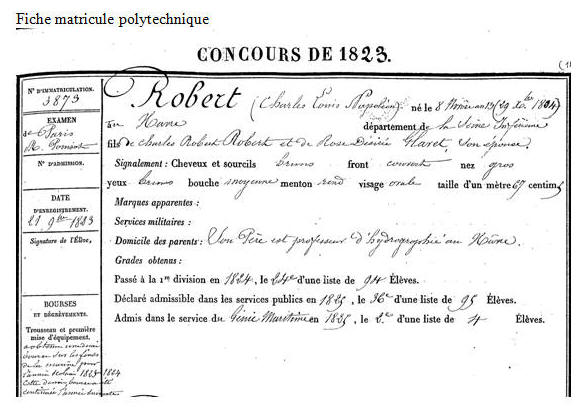 Fiche matricule polytechnique
CONCOURS DE 1823.
N° D'IMMATRICULATION.
3873
EXAMEN
de Paris
N° D'ADMISSION.
DATE
D'ENREGISTREMENT.
21 9bre 1823
Signature de l'Élève,
BOURSES
ET DÉGRÈVEMENTS.
Trousseau et première
mise d'équipement.
bourse sur les fonds
de la marine pour
l'année scolaire 1823-1824
Robert (Charles Louis Napoléon) né le 8 Nivôse an 13 (29 Xbre 1804)
au Havre département de la Seine Inférieure
fils de Charles Robert Robert et de Rose Désirée son épouse.
Signalement : Cheveux et sourcils bruns front couvert nez gros
yeux bruns bouche moyenne menton rond visage ovale taille d'un mètre 67 centim.
Marques apparentes :
Services militaires :
Domicile des parents : Son Père est professeur d'hydrographie au Havre.
Grades obtenus :
Passé à la 1re division en 1824, le 24e d'une liste de 94 Élèves.
Déclaré admissible dans les services publics en 1825, le 36e d'une liste de 95 Élèves.
Admis dans le service du Génie Maritime en 1825, le 2e d'une liste de 4 Élèves.